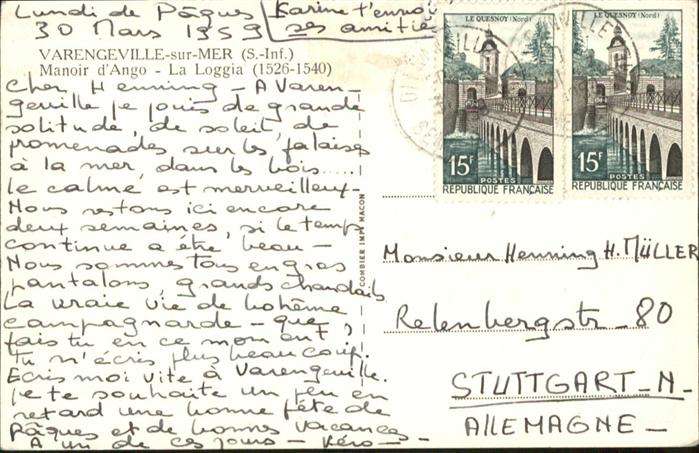 Lundi de Pâques
30 Mars 1959
Karine t'envoie
ses amitiés
VARENGEVILLE-sur-MER (S.-Inf.)
Manoir d'Ango - La Loggia (1526-1540)
Cher Henning - A Varen-
geville je jouis de grande
solitude, de soleil, de
promenades sur les falaises
à la mer, dans les bois.....
le calme est merveilleux -
Nous restons ici encore
deux semaines, si le temps
continue a être beau -
Nous sommes tous en gros
pantalons, grands chandails
La vraie vie de bohême
campagnarde - que
fais tu en ce moment?
Tu n'écris plus beaucoup.
Ecris moi vite à Varengeville.
Je te souhaite un peu en
retard une bonne fête de
Pâques et de bonnes vacances
A un de ces jours - Véro -
COMBIER IMP. MACON
LE QUESNOY (Nord)
15F
POSTES
REPUBLIQUE FRANÇAISE
LE QUESNOY (Nord)
15F
POSTES
REPUBLIQUE FRANÇAISE
Monsieur Henning H. MÜLLER
Relenbergstr - 80
STUTTGART - N -
ALLEMAGNE -